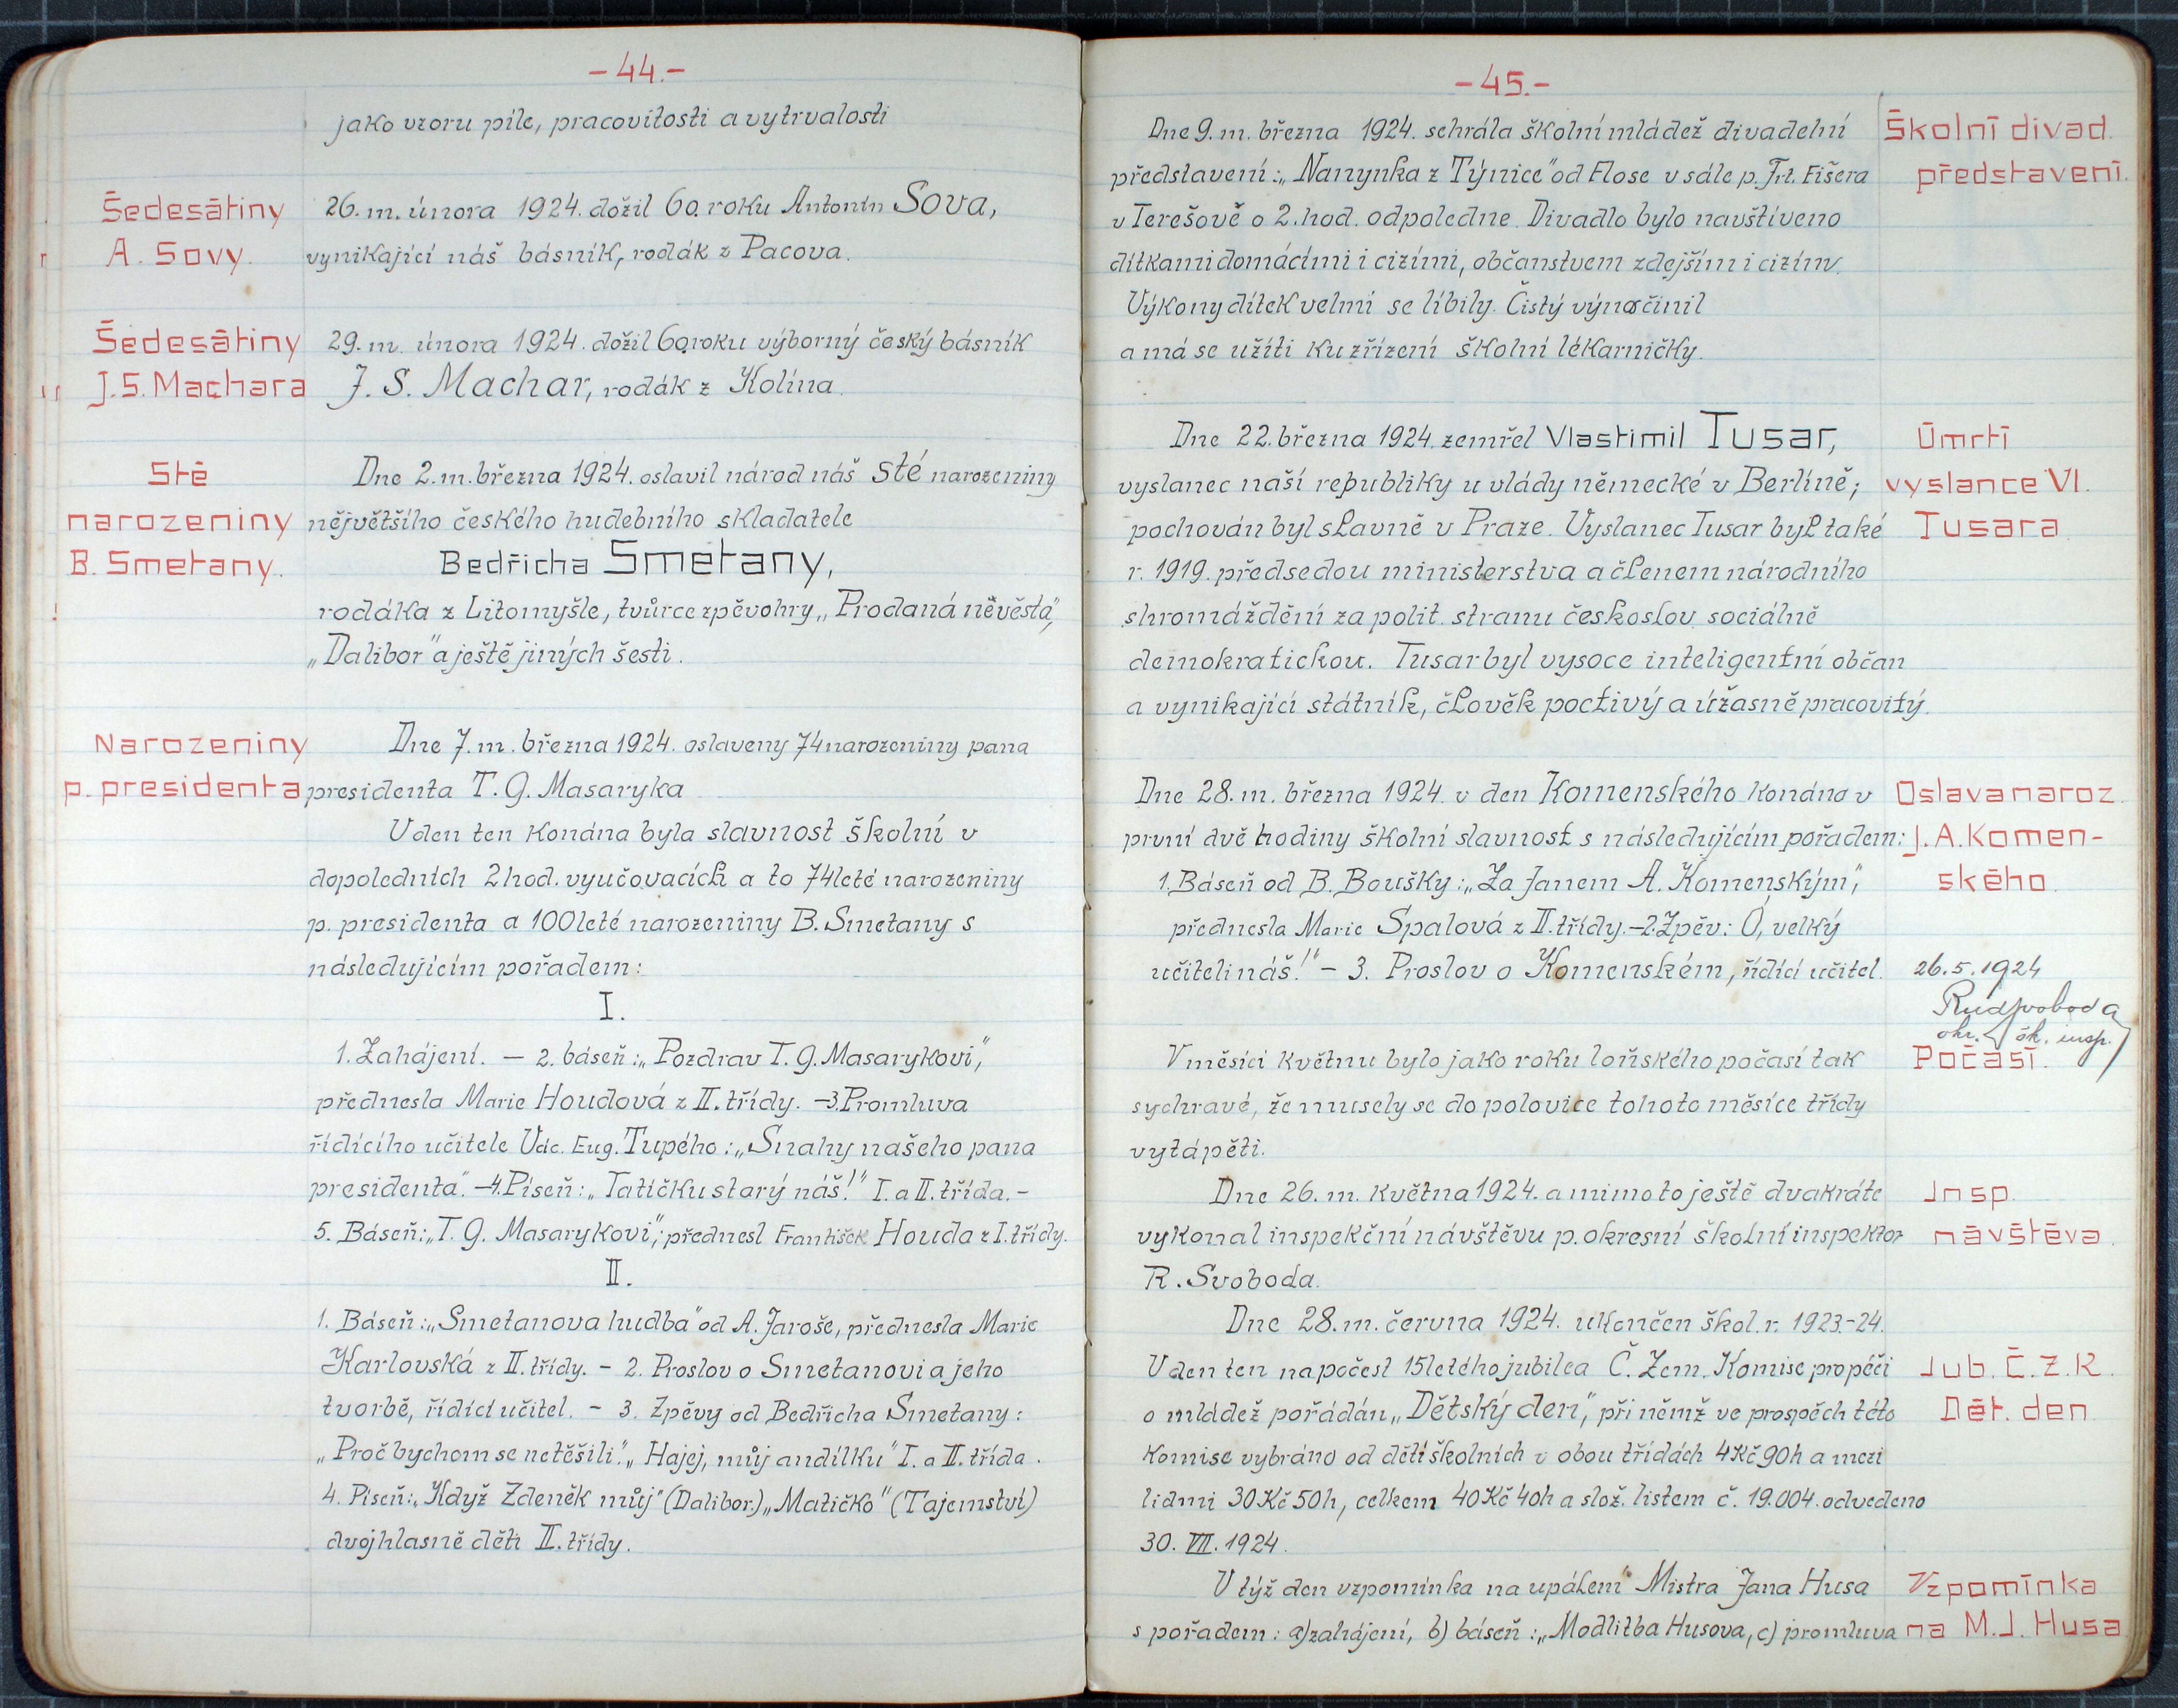 - 44. -
jako vzoru píle, pracovitosti a vytrvalosti
Šedesátiny
A. Sovy.
26. m. února 1924. dožil 60. roku Antonín Sova,
vynikající náš básník, rodák z Pacova.
Šedesátiny
J. S. Machara
29. m. února 1924. dožil 60. roku výborný český básník
J. S. Machar, rodák z Kolína.
Sté
narozeniny
B. Smetany.
Dne 2. m. března 1924. oslavil národ náš sté narozeniny
nějvětšího českého hudebního skladatele
Bedřicha Smetany,
rodáka z Litomyšle, tvůrce zpěvohry „Prodaná něvěsta",
„Dalibor" a ještě jiných šesti.
Narozeniny
p. presidenta
Dne 7. m. března 1924. oslaveny 74 narozeniny pana
presidenta T. G. Masaryka
V den ten konána byla slavnost školní v
dopoledních 2 hod. vyučovacích a to 74leté narozeniny
p. presidenta a 100leté narozeniny B. Smetany s
následujícím pořadem:
I.
1. Zahájení. — 2. báseň: „Pozdrav T. G. Masarykovi",
přednesla Marie Houdová z II. třídy. — 3. Promluva
řídícího učitele Vác. Eug. Tupého: „Snahy našeho pana
presidenta". — 4. Píseň: „Tatíčku starý náš!" I. a II. třída. -
5. Báseň: „T. G. Masarykovi"; přednesl František Houda z I. třídy.
II.
1. Báseň: „Smetanova hudba" od A. Jaroše, přednesla Marie
Karlovská z II. třídy. - 2. Proslov o Smetanovi a jeho
tvorbě, řídící učitel. - 3. Zpěvy od Bedřicha Smetany:
„Proč bychom se netěšili". „Hajej, můj andílku" I. a II. třída.
4. Píseň: „Když Zdeněk můj" (Dalibor.) „Matičko" (Tajemství)
dvojhlasně děti II. třídy.
- 45. -
Dne 9. m. března 1924. sehrála školní mládež divadelní
představení: „Nanynka z Týnice" od Flose v sále p. Frt. Fišera
v Terešově o 2. hod. odpoledne. Divadlo bylo navštíveno
dítkami domácími i cizími, občanstvem zdejším i cizím.
Výkony dítek velmi se líbily. Čistý výnos činil
a má se užíti ku zřízení školní lékarničky.
Školní divad.
představení.
Dne 22. března 1924. zemřel Vlastimil Tusar,
vyslanec naší republiky u vlády německé v Berlíně;
pochován byl slavně v Praze. Vyslanec Tusar byl také
r. 1919. předsedou ministerstva a členem národního
shromáždění za polit. stranu českoslov. sociálně
demokratickou. Tusar byl vysoce inteligentní občan
a vynikající státník, člověk poctivý a úžasně pracovitý.
Úmrtí
vyslance Vl.
Tusara
Dne 28. m. března 1924. v den Komenského konána v
první dvě hodiny školní slavnost s následujícím pořadem:
1. Báseň od B. Boušky: „Za Janem A. Komenským",
přednesla Marie Spalová z II. třídy. — 2. Zpěv: Ó, velký
učiteli náš!" — 3. Proslov o Komenském, řídící učitel.
Oslava naroz.
J. A. Komen-
ského.
26. 5. 1924
Rud Svoboda
okr. šk. insp.
V měsíci květnu bylo jako roku loňského počasí tak
sychravé, že musely se do polovice tohoto měsíce třídy
vytápěti.
Počasí.
Dne 26. m. května 1924. a mimo to ještě dvakráte
vykonal inspekční návštěvu p. okresní školní inspektor
R. Svoboda.
Insp.
návštěva.
Dne 28. m. června 1924. ukončen škol. r. 1923.-24.
V den ten na počest 15letého jubilea Č. Zem. Komise pro péči
o mládež pořádán „Dětský den", při němž ve prospěch této
komise vybráno od dětí školních v obou třídách 4 Kč 90 h a mezi
lidmi 30 Kč 50 h, celkem 40 Kč 40 h a slož. listem č. 19.004. odvedeno
30. VII. 1924.
Jub. Č. Z. K.
Dět. den
V týž den vzpomínka na upálení Mistra Jana Husa
s pořadem: a) zahájení, b) báseň: „Modlitba Husova, c) promluva
Vzpomínka
na M. J. Husa